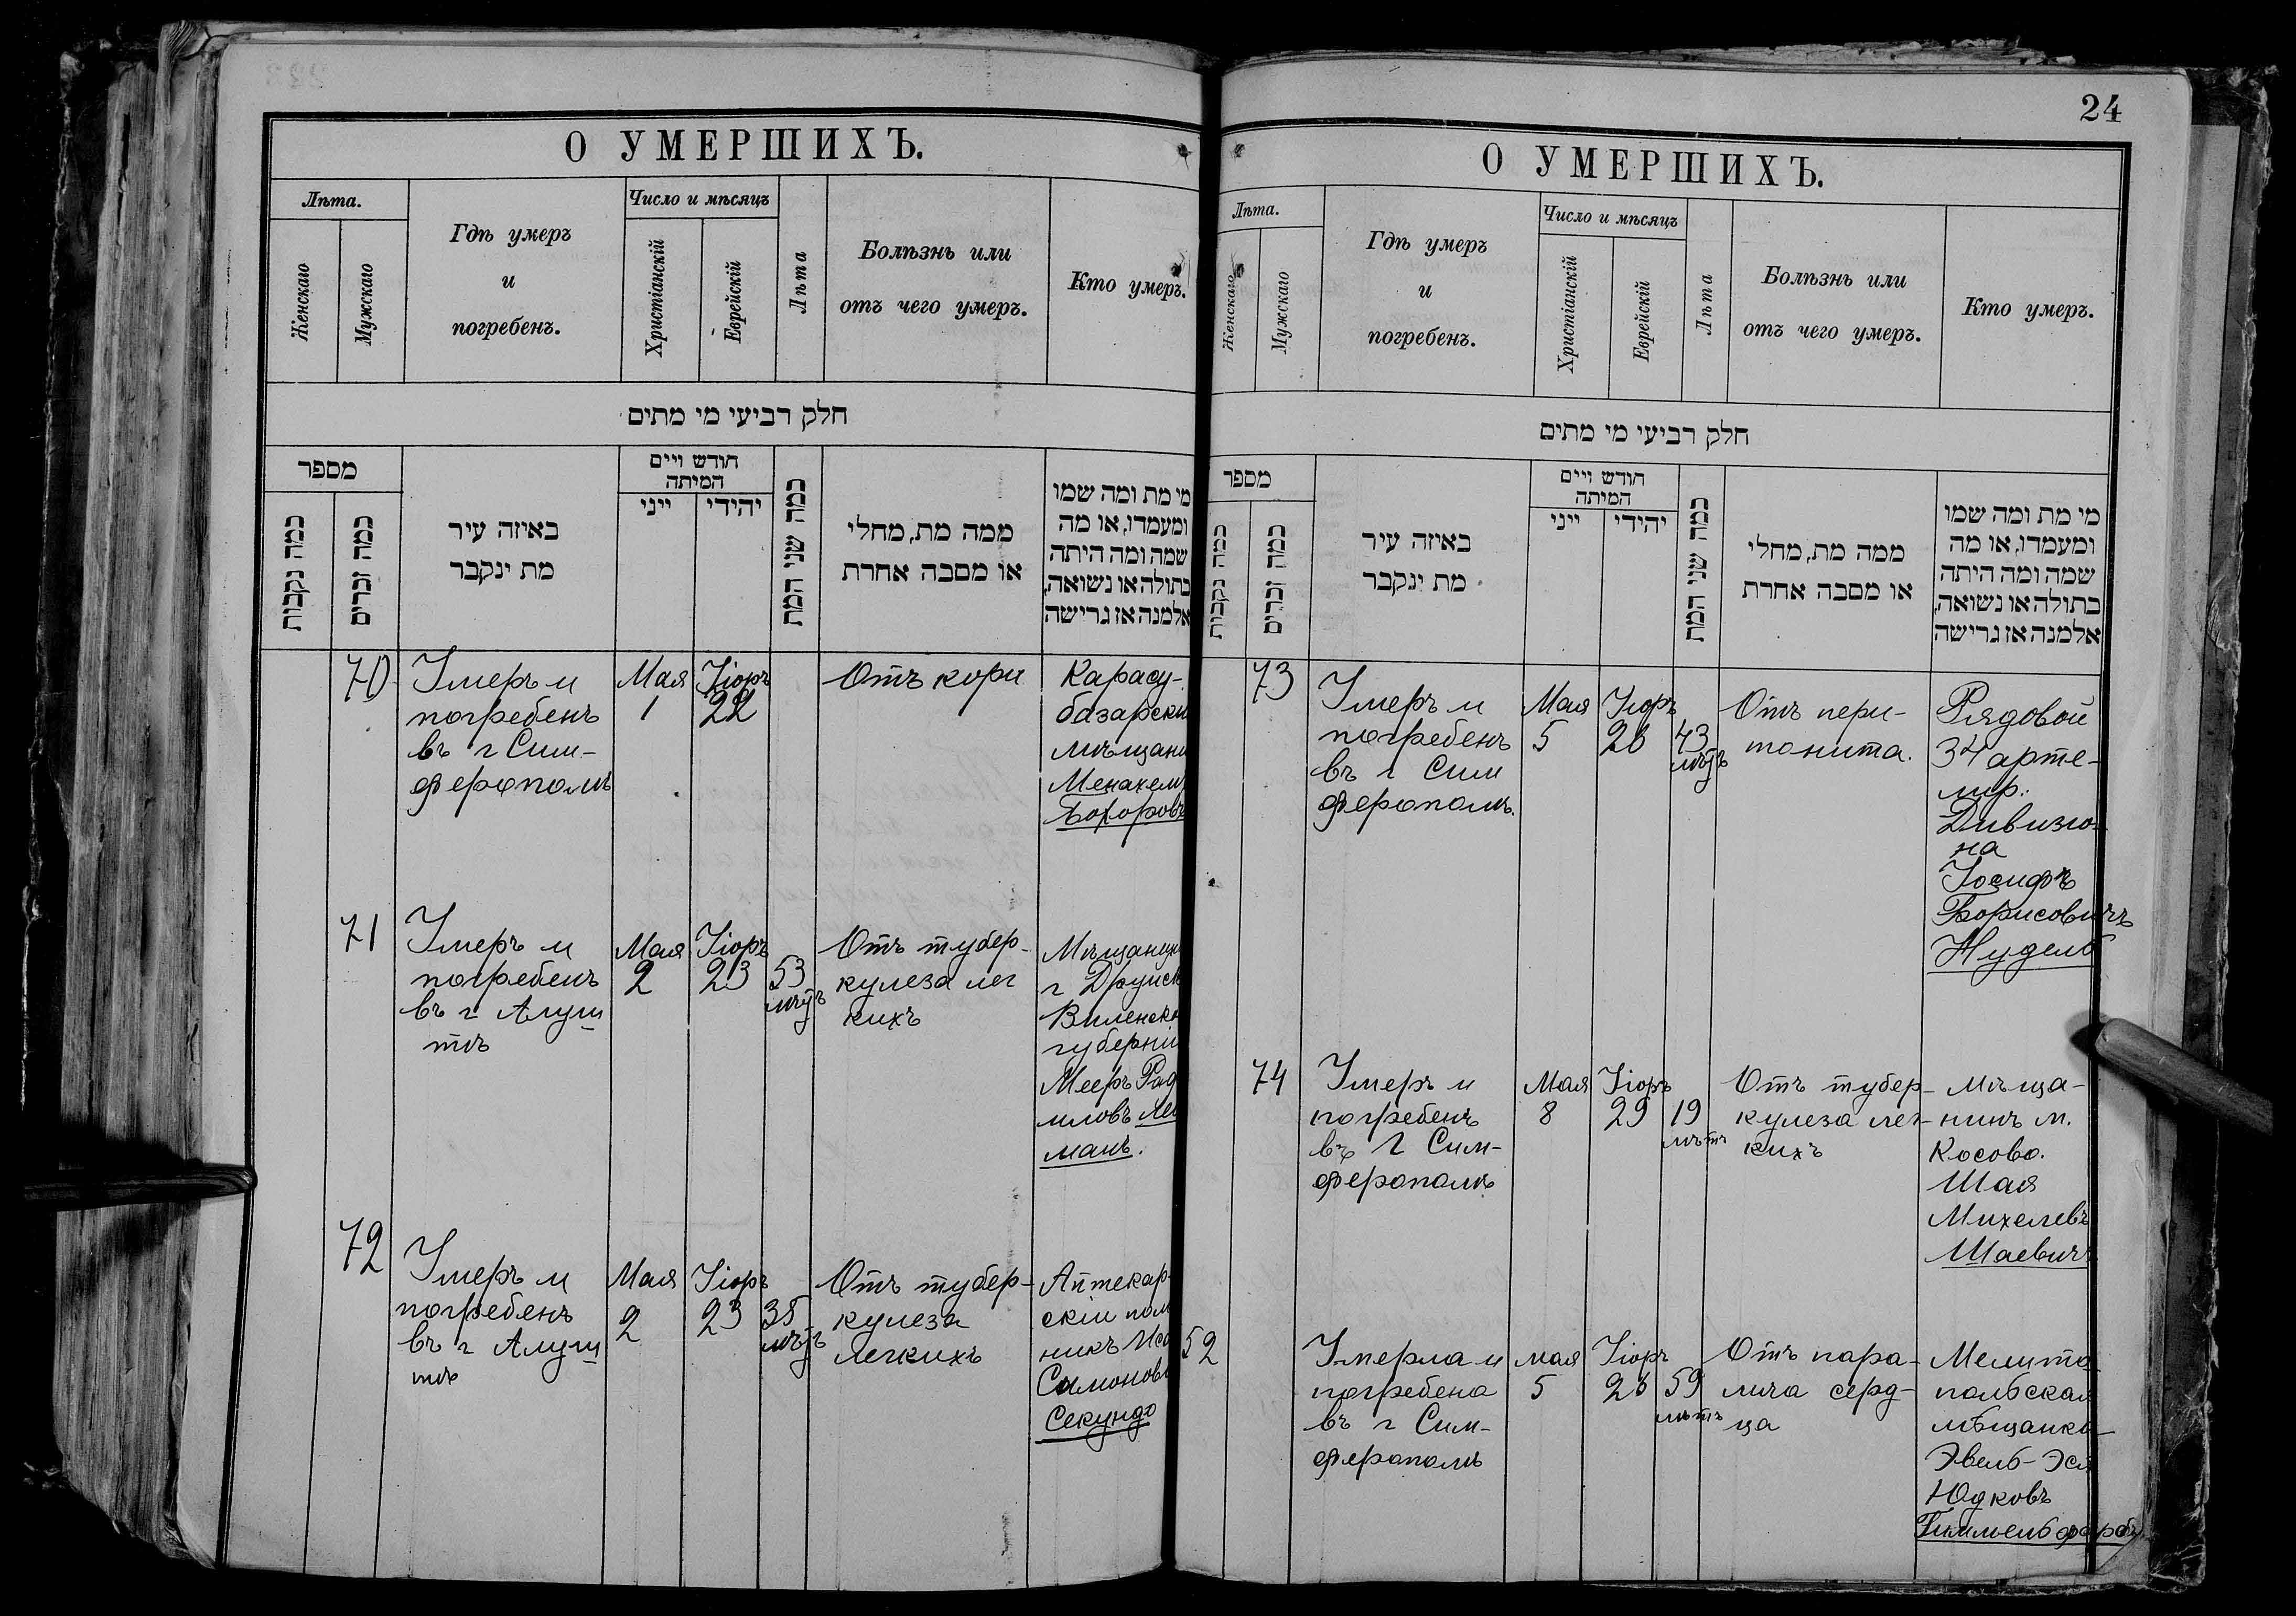 О УМЕРШИХЪ.
Лѣта.
Женскаго
Мужскаго
Гдѣ умеръ
и
погребенъ.
Число и мѣсяцъ
Христіанскій
Еврейскій
Лѣта
Болѣзнь или
отъ чего умеръ.
Кто умеръ.
חלק רביעי מי מתים
מספר
כמה נקבות
כמה זכרים
באיזה עיר
מת ינקבר
חודש ויים
המיתה
ייני
יהידי
כמה שני המת
ממה מת, מחלי
או מסבה אחרת
מי מת ומה שמו
ומעמדו, או מה
שמה ומה היתה
בתולה או נשואה,
אלמנה אז גרישה
70
Умеръ и
погребенъ
въ г Сим-
ферополѣ
Мая
1
Іюръ
22
Отъ кори
Карасу-
базарски
мѣщани
Менахем
Бохоровъ
71
Умеръ и
погребенъ
въ г Алуш
тѣ
Мая
2
Іюръ
23
53
лѣтъ
Отъ тубер-
кулеза лег
кихъ
Мѣщанин
г Друиск
Виленско
губерніи
Мееръ
манъ.
72
Умеръ и
погребенъ
въ г Алуш
тѣ
Мая
2
Іюръ
23
35
лѣтъ
Отъ тубер-
кулеза
легкихъ
Аптекар-
скій пом
никъ
Симонов
Секундо
24
О УМЕРШИХЪ.
Лѣта.
Женскаго
Мужскаго
Гдѣ умеръ
и
погребенъ.
Число и мѣсяцъ
Христіанскій
Еврейскій
Лѣта
Болѣзнь или
отъ чего умеръ.
Кто умеръ.
חלק רביעי מי מתים
מספר
כמה נקבות
כמה זכרים
באיזה עיר
מת ינקבר
חודש ויים
המיתה
ייני
יהידי
כמה שני המת
ממה מת, מחלי
או מסבה אחרת
מי מת ומה שמו
ומעמדו, או מה
שמה ומה היתה
בתולה או נשואה,
אלמנה אז גרישה
73
Умеръ и
погребенъ
въ г Сим
ферополѣ.
Мая
5
Іюръ
26
43
лѣтъ
Отъ пери-
тонита.
Рядовой
34 арте-
лир.
Дивизіо-
на
Іосифъ
Борисовичъ
Нудель
74
Умеръ и
погребенъ
въ г Сим-
ферополѣ
Мая
8
Іюръ
29
19
лѣтъ
Отъ тубер-
кулеза лег-
кихъ
Мѣща-
нинъ м.
Косово.
Шая
Михелевъ
Шаевичъ
52
Умерла и
погребена
въ г Сим-
ферополѣ
мая
5
Іюръ
26
59
лѣтъ
Отъ пара-
лича серд-
ца
Мелито-
польская
мѣщанка
Эвель-Эся
Юдковъ
Гиммельфарбъ